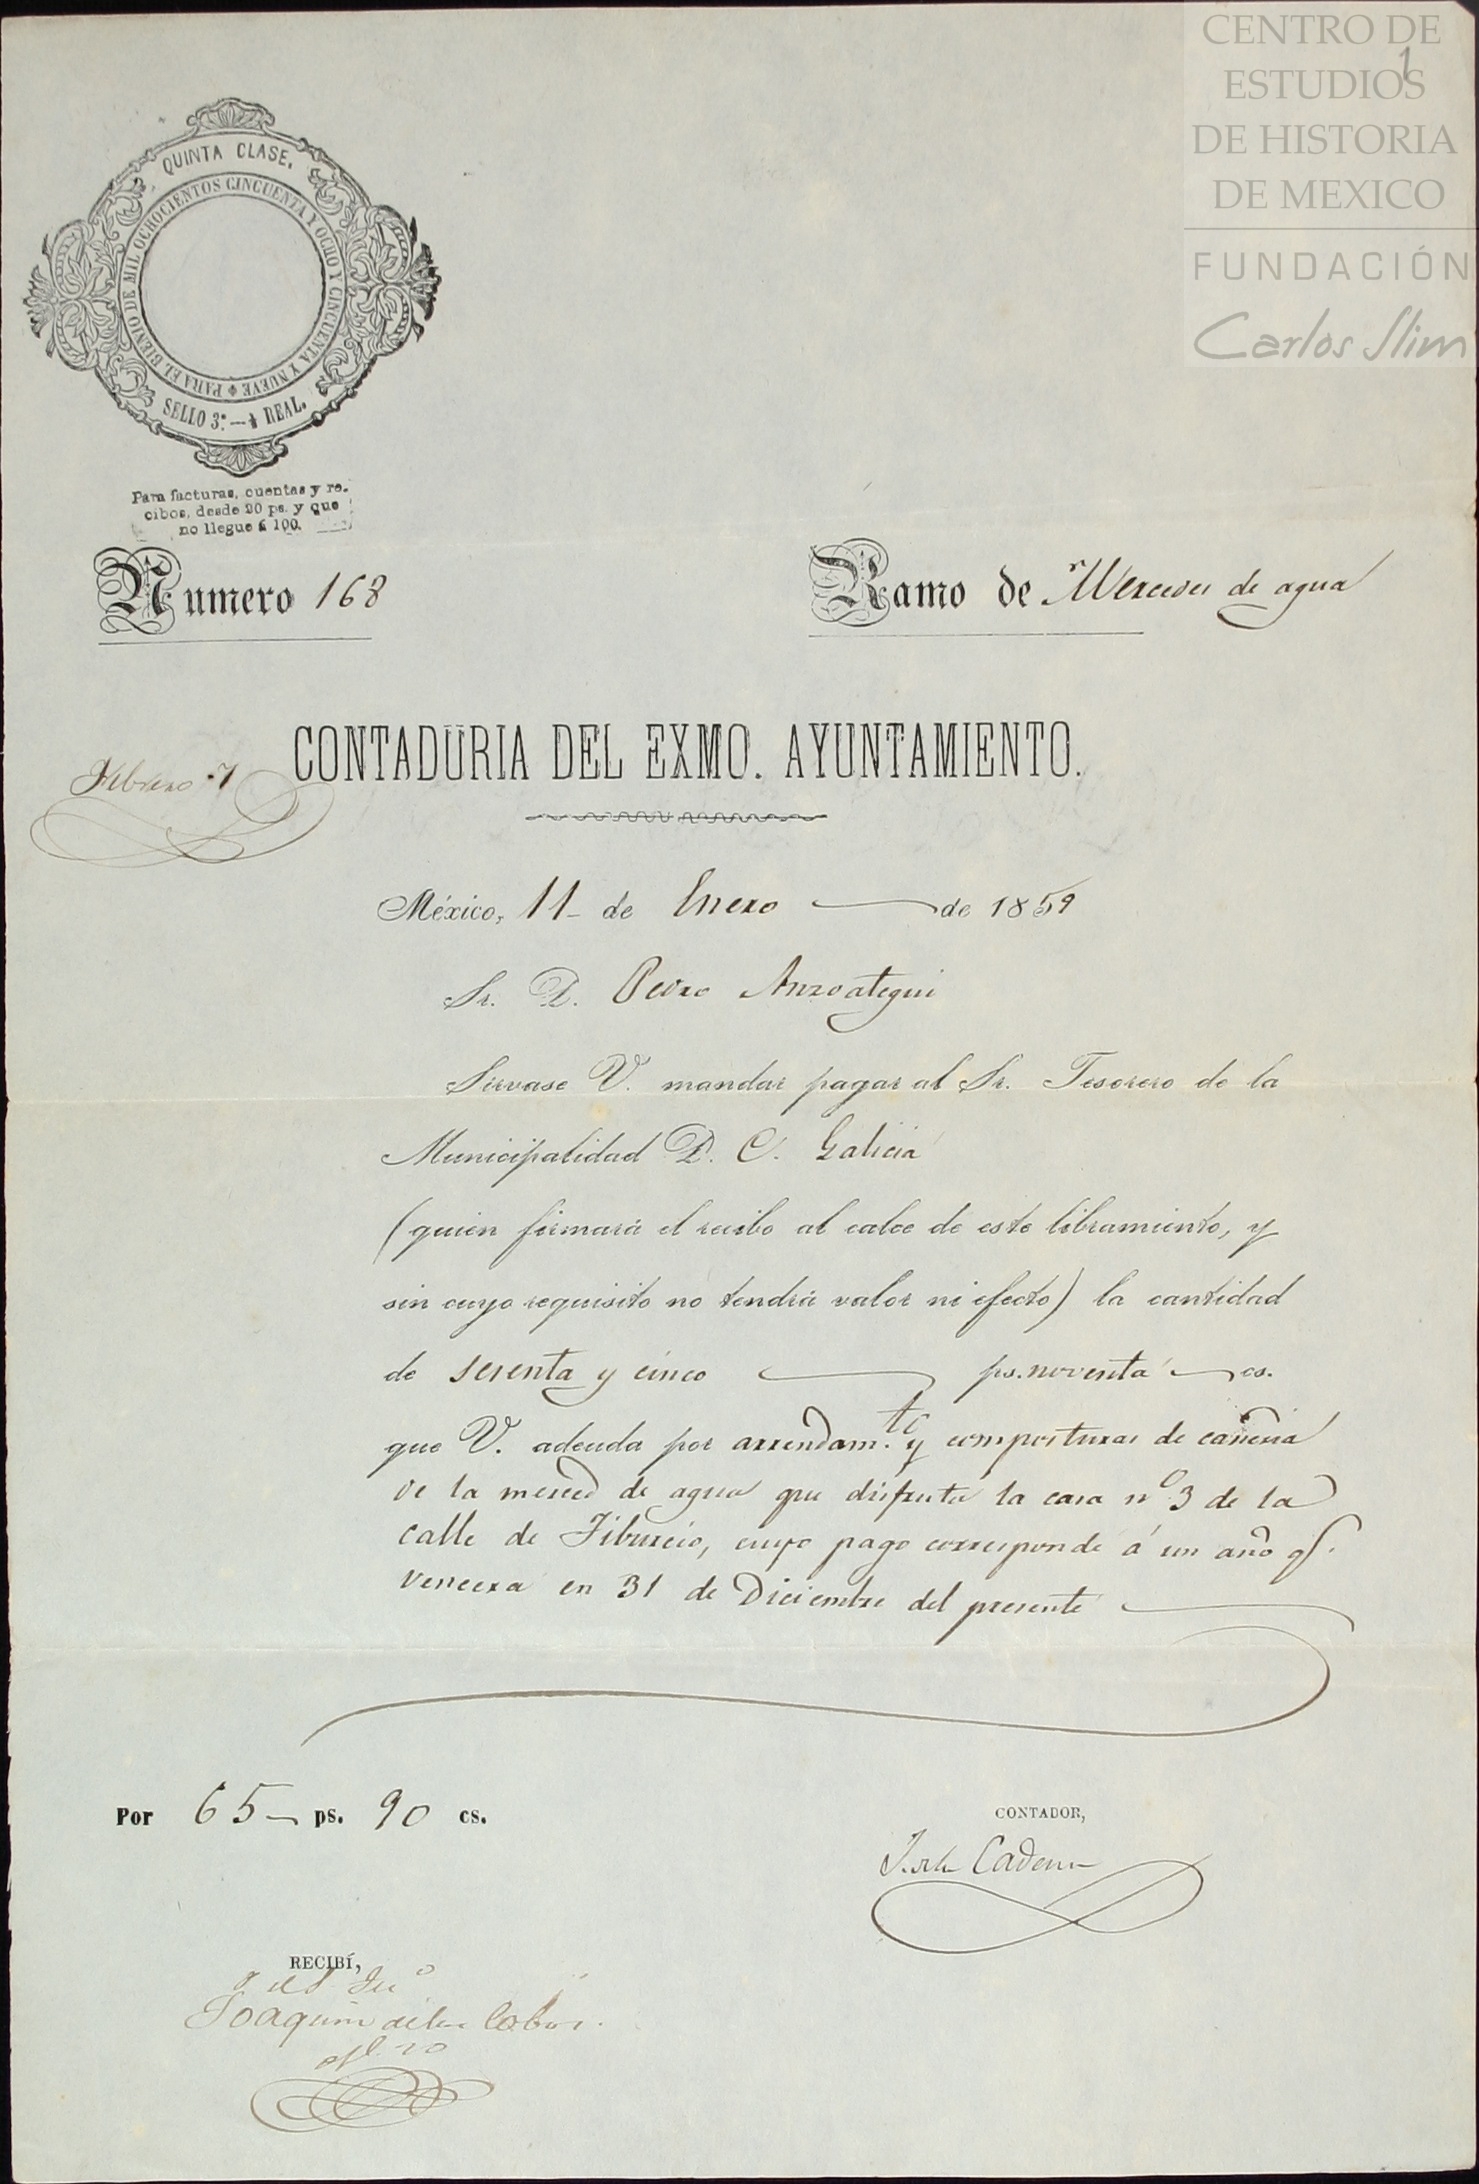 CENTRO DE
ESTUDIOS
DE HISTORIA
DE MEXICO
FUNDACIÓN
Carlos Slim
1
QUINTA CLASE.
PARA EL BIENIO DE MIL OCHOCIENTOS CINCUENTA Y OCHO Y CINCUENTA Y NUEVE
SELLO 3º.—½ REAL.
Para facturas, cuentas y re-
cibos, desde 20 ps. y que
no llegue á 100.
Numero 168
Ramo de Mercedes de agua
CONTADURIA DEL EXMO. AYUNTAMIENTO.
Febrero 7
México, 11 de Enero de 1859
Sr. D. Pedro Anzoategui
Sírvase V. mandar pagar al Sr. Tesorero de la
Municipalidad D. C. Galicia
(quien firmará el recibo al calce de este libramiento, y
sin cuyo requisito no tendrá valor ni efecto) la cantidad
de sesenta y cinco ps. noventa cs.
que V. adeuda por arrendam.to y composturas de cañeria
de la merced de agua que disfruta la casa nº 3 de la
calle de Tiburcio, cuyo pago corresponde á un año q.
vencera en 31 de Diciembre del presente
Por 65 ps. 90 cs.
CONTADOR,
Cadena
RECIBÍ,
Joaquin de los Cobos.